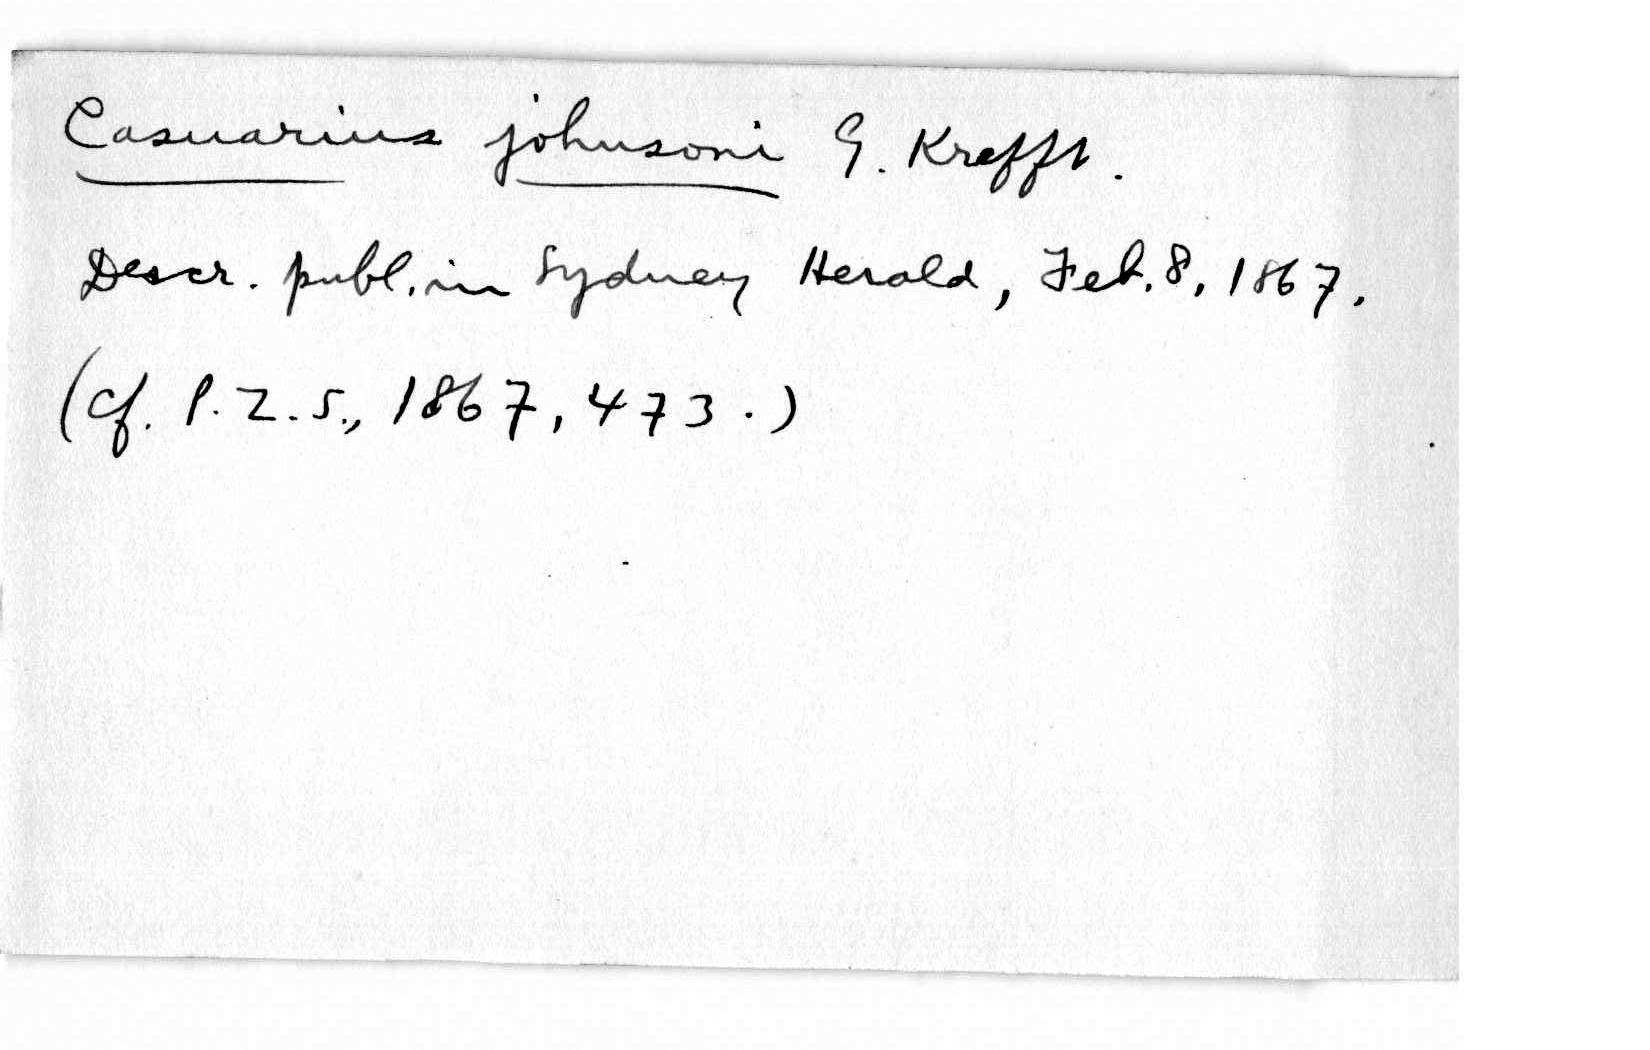 Casuarius johnsoni G. Krefft.
Descr. publ. in Sydney Herald, Feb. 8, 1867.
(cf. P.Z.S., 1867, 473.)